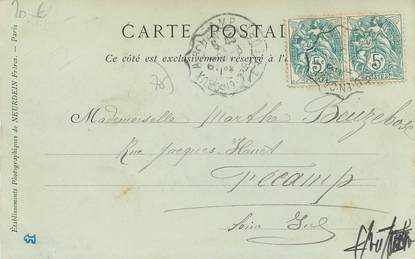 20 €
CARTE POSTAL
Ce côté est exclusivement réservé à l'a
78
5c 5c
Mademoiselle Marthe Beuzebosc
Rue Jacques Huet
Fécamp
Seine Inf
Établissements Photographiques de NEURDEIN Frères. — Paris